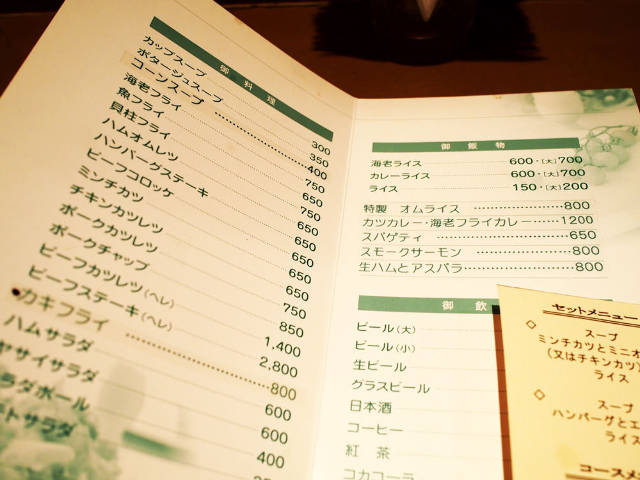 御料理
カップスープ 300
ポタージュスープ 350
コーンスープ 400
海老フライ 750
魚フライ 650
貝柱フライ 750
ハムオムレツ 650
ハンバーグステーキ 650
ビーフコロッケ 650
ミンチカツ 650
チキンカツレツ 750
ポークカツレツ 850
ポークチャップ
ビーフカツレツ(ヘレ) 1,400
ビーフステーキ(ヘレ) 2,800
カキフライ 800
ハムサラダ 600
ヤサイサラダ 600
ラダボール 400
トサラダ
御飯物
海老ライス 600・(大)700
カレーライス 600・(大)700
ライス 150・(大)200
特製 オムライス 800
カツカレー・海老フライカレー 1200
スパゲティ 650
スモークサーモン 800
生ハムとアスパラ 800
御飲
ビール(大)
ビール(小)
生ビール
グラスビール
日本酒
コーヒー
紅茶
コカコーラ
セットメニュー
◇ スープ
ミンチカツとミニオ
(又はチキンカツ)
ライス
◇ スープ
ハンバーグとエ
ライス
コースメ